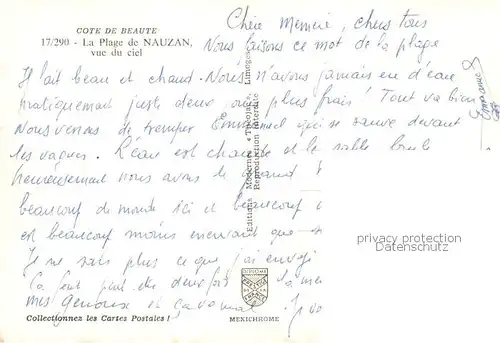 COTE DE BEAUTE
17/290 - La Plage de NAUZAN,
vue du ciel
Chère Mémère, chers tous
Nous faisons ce mot de la plage
Il fait beau et chaud. Nous n'avons jamais eu d'eau
pratiquement juste deux ou plus frais! Tout va bien
Nous venons de tremper Emmanuel qui se sauve devant
les vagues. L'eau est chaude et le sable brûle
heureusement nous avons le
beaucoup de monde ici et beaucoup
est beaucoup moins énervant que
Je ne sais plus ce que j'ai
Ça fait
mes genoux et ça va mal. Je
Emmanuel
Editions Modernes « Théojac », Limoges
Reproduction Interdite
privacy protection
Datenschutz
DIPLOME
PRESTIGE
FRANCE
Collectionnez les Cartes Postales !
MEXICHROME